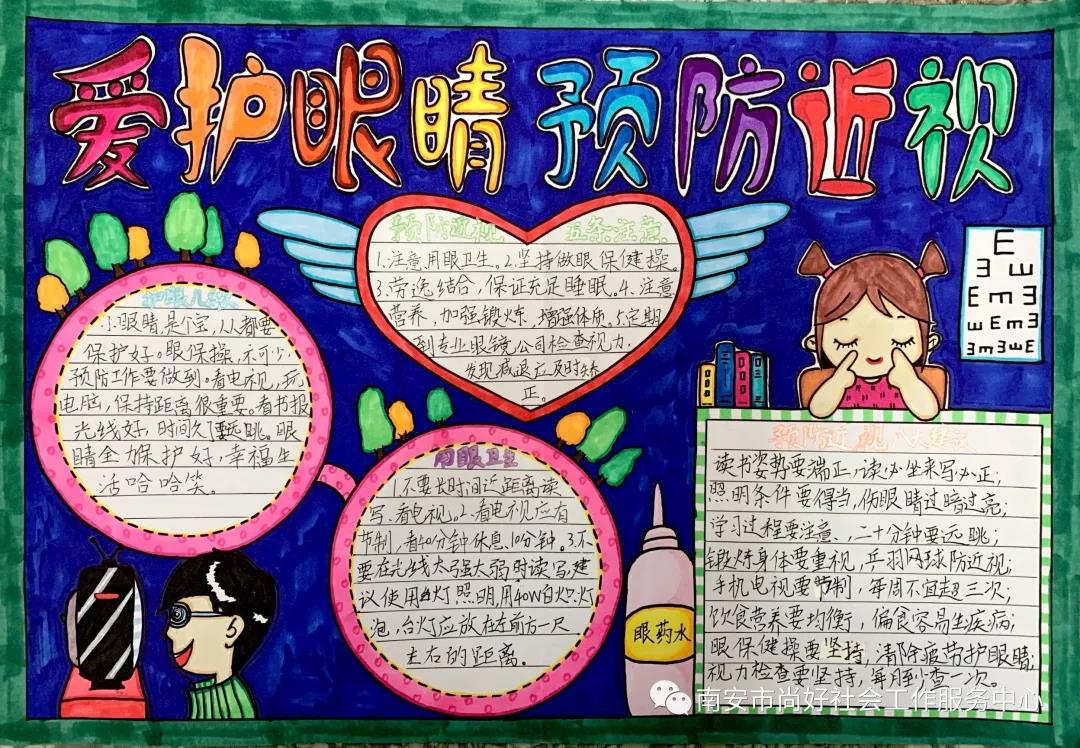 爱护眼睛 预防近视
预防近视 五条注意
1.注意用眼卫生。2.坚持做眼保健操。
3.劳逸结合,保证充足睡眠。4.注意
营养,加强锻炼,增强体质。5.定期
到专业眼镜公司检查视力。
发现减退应及时矫
正。
护眼儿歌
小眼睛是个宝,人人都要
保护好。眼保操,不可少,
预防工作要做到。看电视,玩
电脑,保持距离很重要。看书报
光线好,时间久了要远眺。眼
睛全力保护好,幸福生
活哈哈笑。
用眼卫生
1.不要长时间近距离读
写、看电视。2.看电视应有
节制,看40分钟休息10分钟。3.不
要在光线太强太弱时读写,建
议使用灯照明,用40W白炽灯
泡,台灯应放在左前方一尺
左右的距离。
预防近视八大建议
读书姿势要端正,读必坐来写必正;
照明条件要得当,伤眼睛过暗过亮;
学习过程要注意,二十分钟要远眺;
锻炼身体要重视,乒羽网球防近视;
手机电视要节制,每周不宜超三次;
饮食营养要均衡,偏食容易生疾病;
眼保健操要坚持,清除疲劳护眼睛;
视力检查要坚持,每月至少查一次。
眼药水
E
E E E
E E E
E E E E
E E E E E
南安市尚好社会工作服务中心